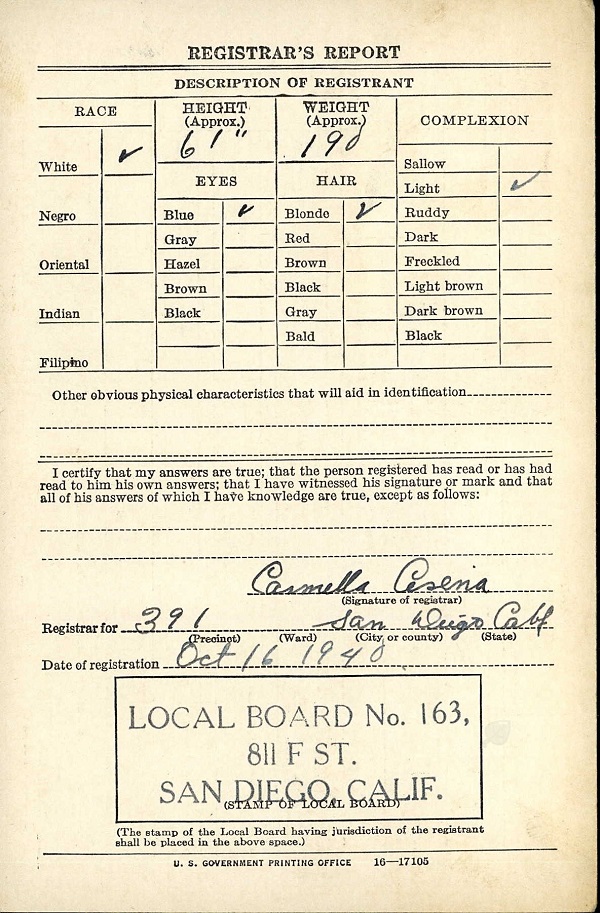 REGISTRAR'S REPORT
DESCRIPTION OF REGISTRANT
RACE
HEIGHT
(Approx.)
WEIGHT
(Approx.)
COMPLEXION
6' 1"
190
White ✓
Sallow
EYES
HAIR
Light ✓
Negro
Blue ✓
Blonde ✓
Ruddy
Gray
Red
Dark
Oriental
Hazel
Brown
Freckled
Brown
Black
Light brown
Indian
Black
Gray
Dark brown
Bald
Black
Filipino
Other obvious physical characteristics that will aid in identification
I certify that my answers are true; that the person registered has read or has had
read to him his own answers; that I have witnessed his signature or mark and that
all of his answers of which I have knowledge are true, except as follows:
Carmella Cesena
(Signature of registrar)
Registrar for 391 San Diego Calif
(Precinct) (Ward) (City or county) (State)
Date of registration Oct 16 1940
LOCAL BOARD No. 163,
811 F ST.
SAN DIEGO, CALIF.
(STAMP OF LOCAL BOARD)
(The stamp of the Local Board having jurisdiction of the registrant
shall be placed in the above space.)
U. S. GOVERNMENT PRINTING OFFICE 16—17105